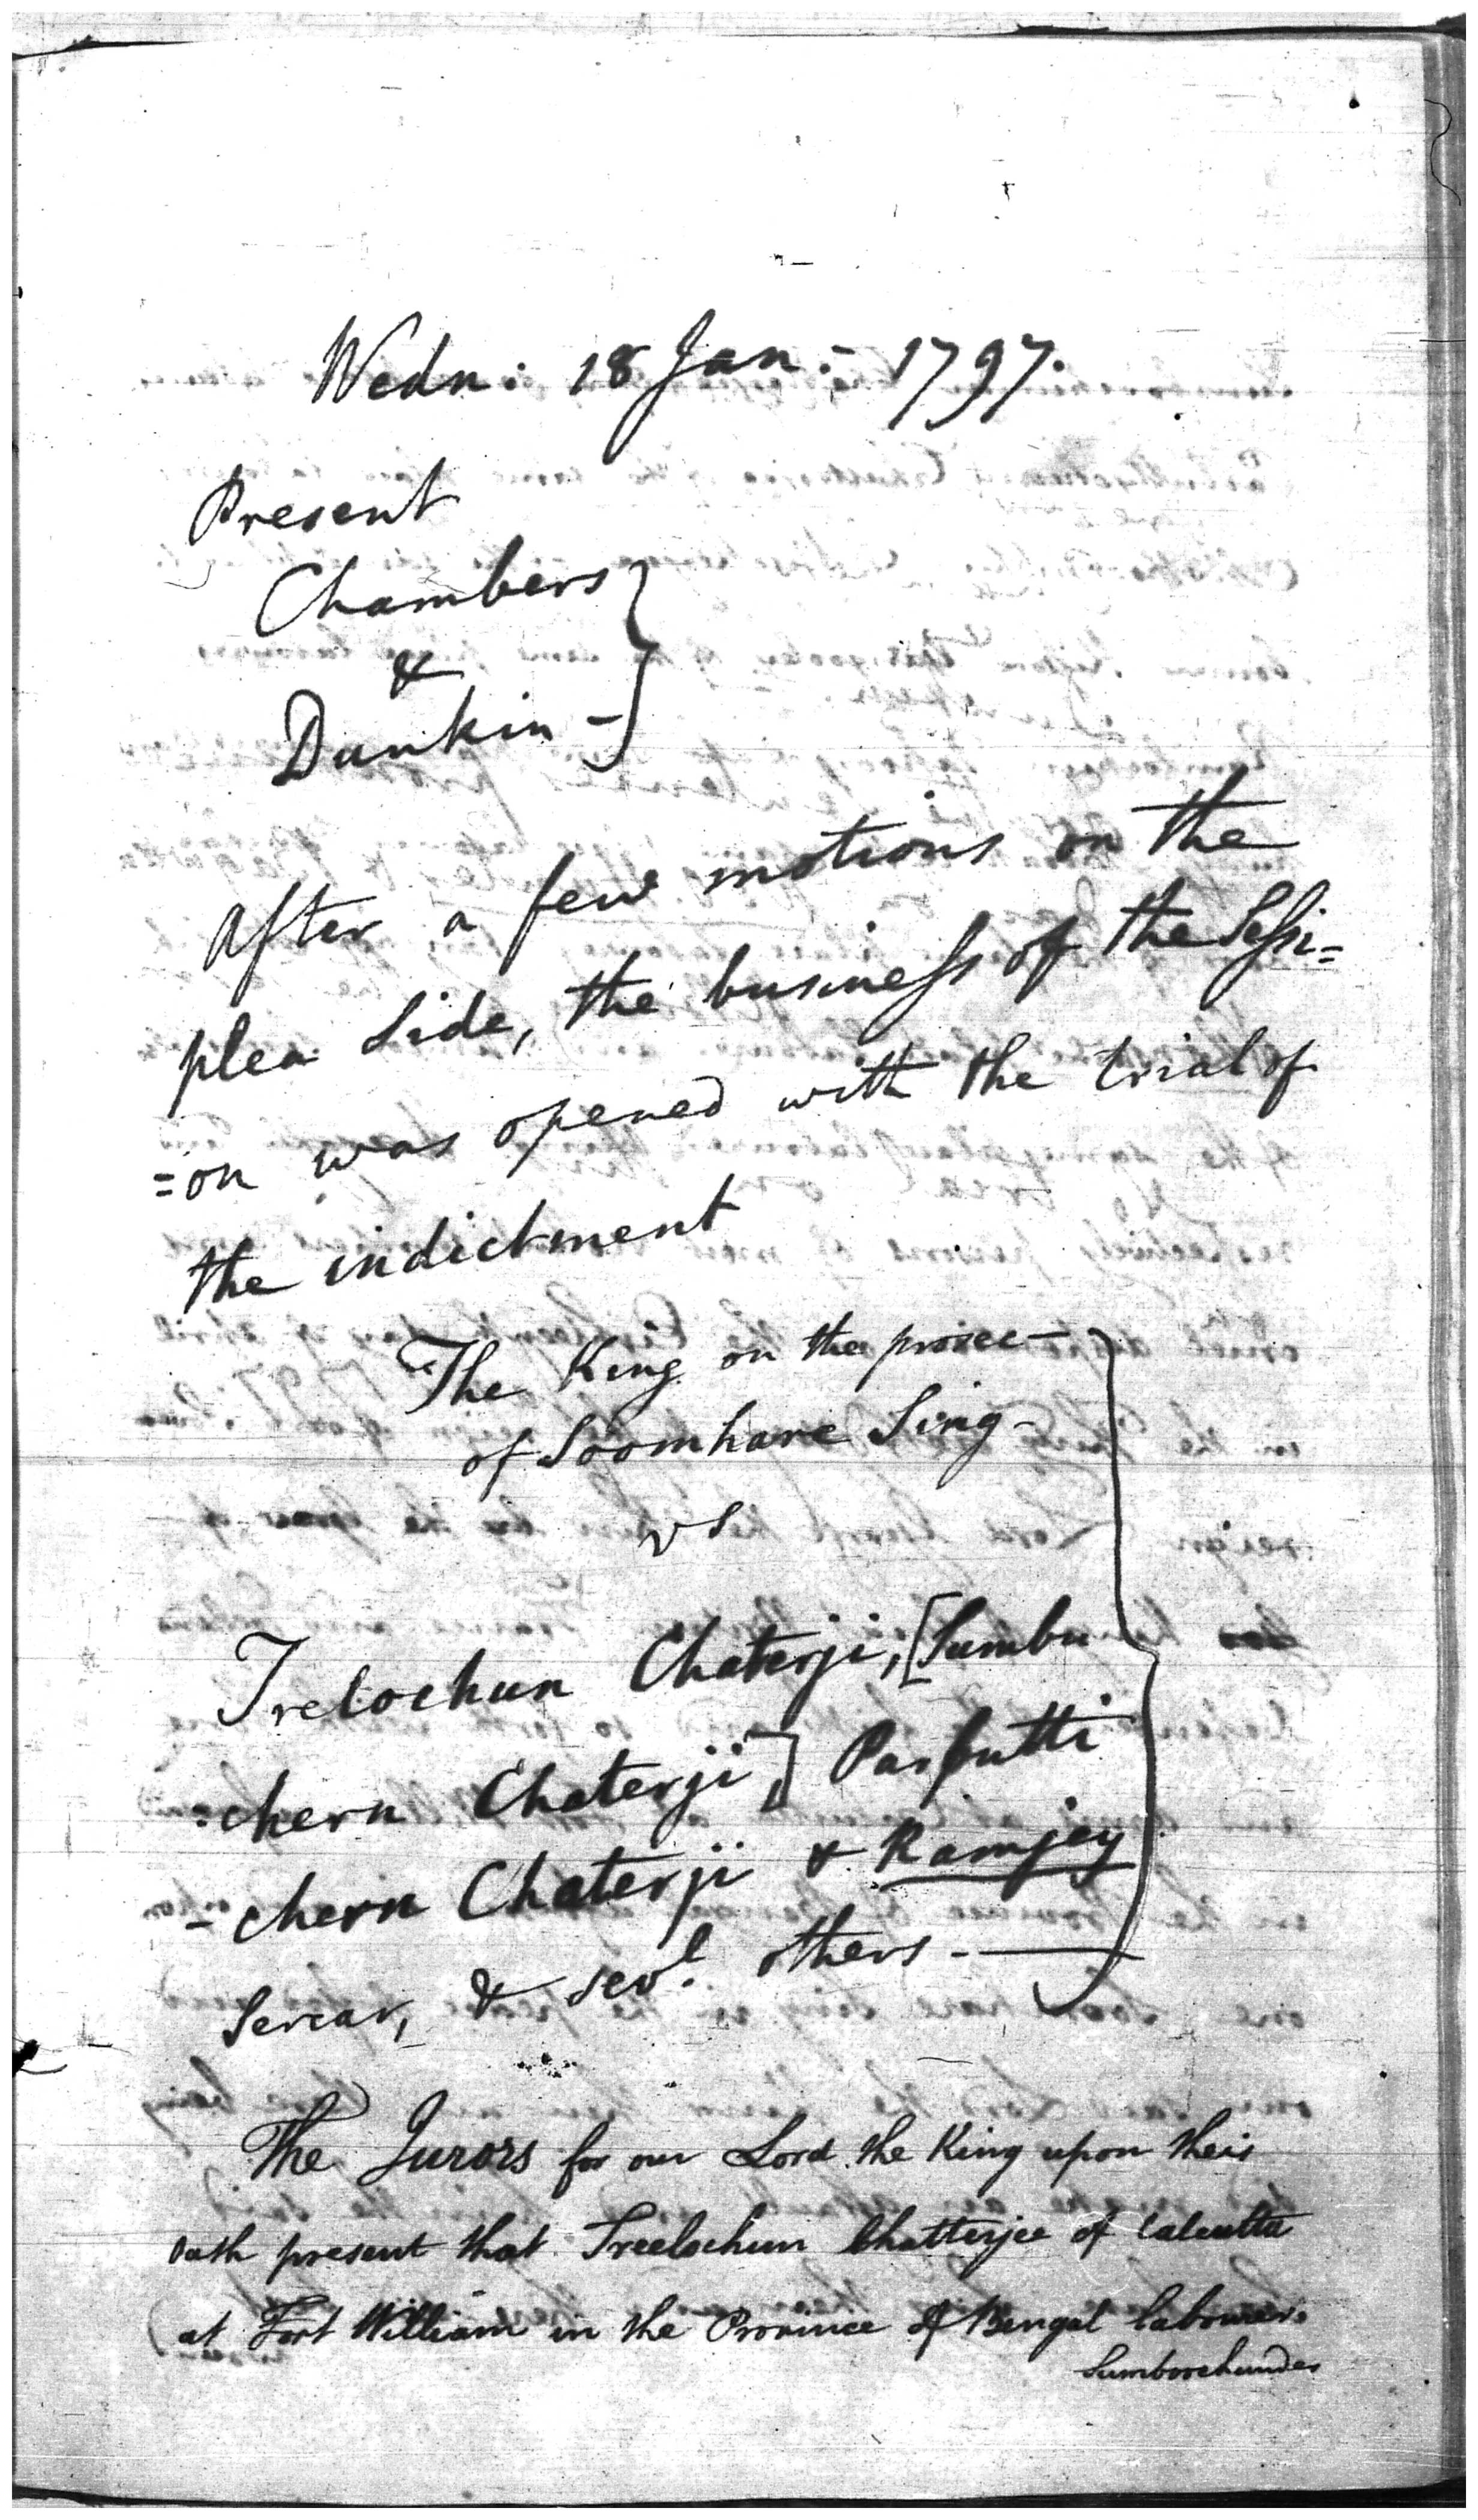 Wedn: 18 Jan:- 1797.
Present
Chambers
&
Dunkin -
After a few motions on the
plea Side, the business of the Sessi=
=on was opened with the trial of
the indictment
The King on the prosec-
of Soomhare Sing -
vs
Trelochun Chaterji, [Sumbu
=chern Chaterji] Parbutti
- chern Chaterji & Ramjey
Sercar, & sevl. others -
The Jurors for our Lord the King upon their
oath present that Treelochun Chatterjee of Calcutta
at Fort William in the Province of Bengal labourer.
Sumboochunder